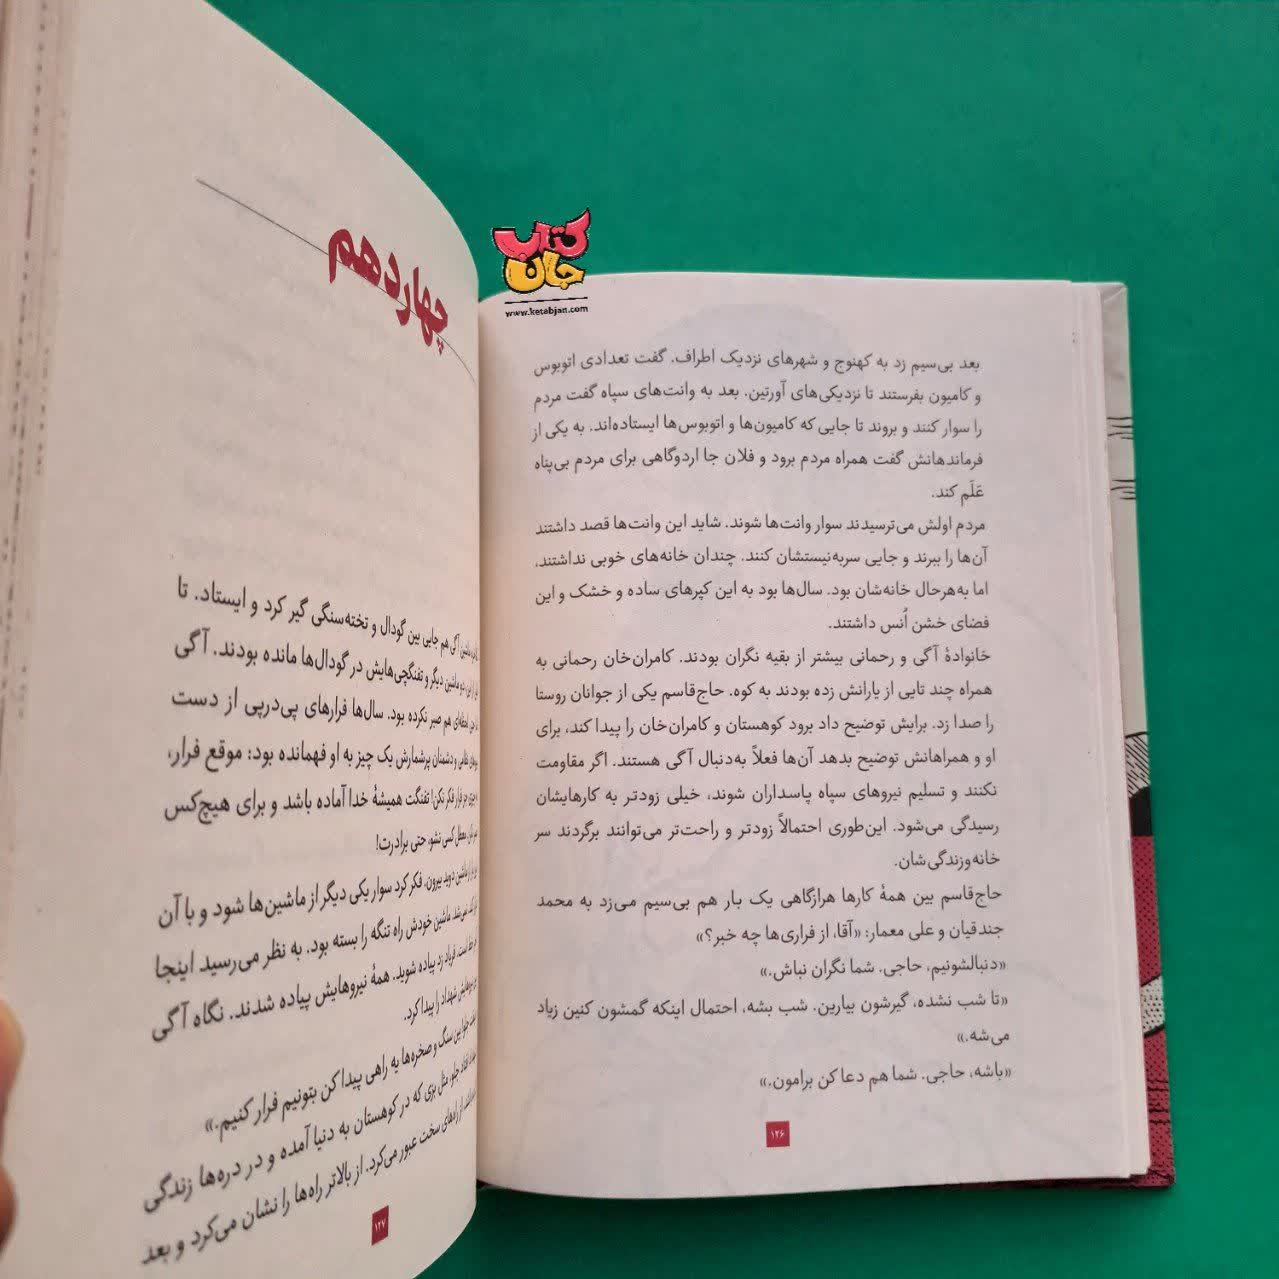 کتاب
جان
www.ketabjan.com
بعد بی‌سیم زد به کهنوج و شهرهای نزدیک اطراف. گفت تعدادی اتوبوس
و کامیون بفرستند تا نزدیکی‌های آورتین. بعد به وانت‌های سپاه گفت مردم
را سوار کنند و بروند تا جایی که کامیون‌ها و اتوبوس‌ها ایستاده‌اند. به یکی از
فرماندهانش گفت همراه مردم برود و فلان جا اردوگاهی برای مردم بی‌پناه
عَلَم کند.
مردم اولش می‌ترسیدند سوار وانت‌ها شوند. شاید این وانت‌ها قصد داشتند
آن‌ها را ببرند و جایی سربه‌نیستشان کنند. چندان خانه‌های خوبی نداشتند،
اما به‌هرحال خانه‌شان بود. سال‌ها بود به این کپرهای ساده و خشک و این
فضای خشن اُنس داشتند.
خانوادهٔ آگی و رحمانی بیشتر از بقیه نگران بودند. کامران‌خان رحمانی به
همراه چند تایی از یارانش زده بودند به کوه. حاج‌قاسم یکی از جوانان روستا
را صدا زد. برایش توضیح داد برود کوهستان و کامران‌خان را پیدا کند، برای
او و همراهانش توضیح بدهد آن‌ها فعلاً به‌دنبال آگی هستند. اگر مقاومت
نکنند و تسلیم نیروهای سپاه پاسداران شوند، خیلی زودتر به کارهایشان
رسیدگی می‌شود. این‌طوری احتمالاً زودتر و راحت‌تر می‌توانند برگردند سر
خانه‌وزندگی‌شان.
حاج‌قاسم بین همهٔ کارها هرازگاهی یک بار هم بی‌سیم می‌زد به محمد
جندقیان و علی معمار: «آقا، از فراری‌ها چه خبر؟»
«دنبالشونیم، حاجی. شما نگران نباش.»
«تا شب نشده، گیرشون بیارین. شب بشه، احتمال اینکه گمشون کنین زیاد
می‌شه.»
«باشه، حاجی. شما هم دعا کن برامون.»
۱۲۶
چهاردهم
ماشین آگی هم جایی بین گودال و تخته‌سنگی گیر کرد و ایستاد. تا
دو ماشین دیگر و تفنگچی‌هایش در گودال‌ها مانده بودند. آگی
هم صبر نکرده بود. سال‌ها فرارهای پی‌درپی از دست
نظامی و دشمنان پرشمارش یک چیز به او فهمانده بود: موقع فرار،
فرار فکر نکن! تفنگت همیشهٔ خدا آماده باشد و برای هیچ‌کس
معطل کسی نشو، حتی برادرت!
از ماشین دوید بیرون. فکر کرد سوار یکی دیگر از ماشین‌ها شود و با آن
نمی‌شد. ماشین خودش راه تنگه را بسته بود. به نظر می‌رسید اینجا
است. فریاد زد پیاده شوید. همهٔ نیروهایش پیاده شدند. نگاه آگی
شهداد را پیدا کرد.
بین سنگ و صخره‌ها یه راهی پیدا کن بتونیم فرار کنیم.»
افتاد جلو. مثل بزی که در کوهستان به دنیا آمده و در دره‌ها زندگی
از راه‌های سخت عبور می‌کرد. از بالاتر راه‌ها را نشان می‌کرد و بعد
۱۲۷